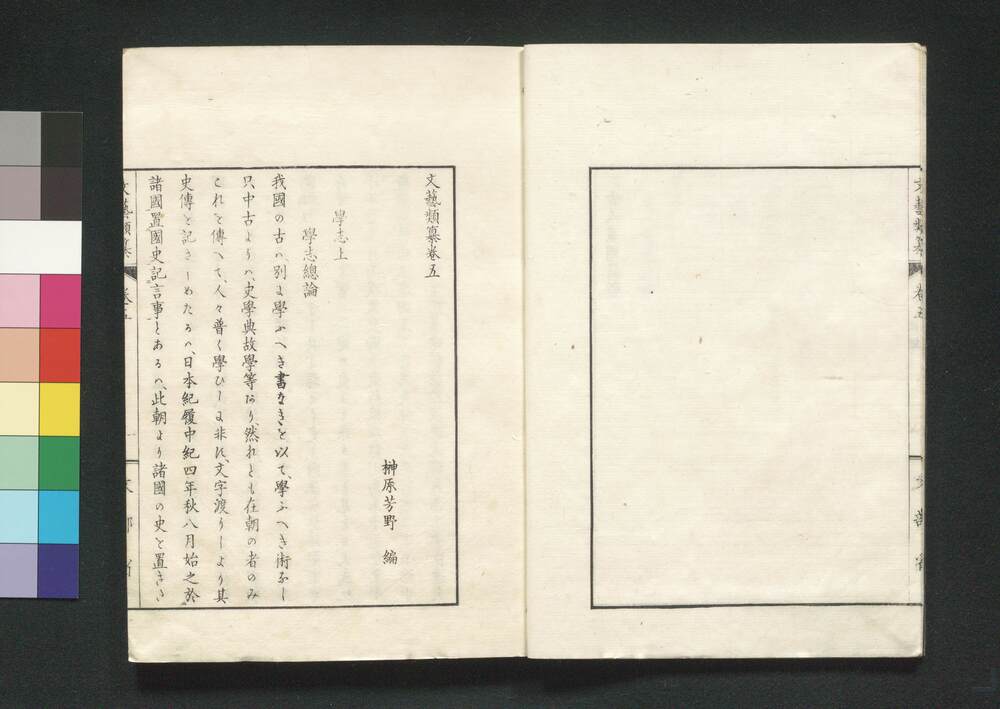 文藝類纂卷五
榊原芳野 編
學志上
學志總論
我國の古ハ、別に學ふへき書なきを以て、學ふへき術なし
只中古よりハ、史學典故學等あり、然れとも在朝の者のみ
これを傳へて、人々普く學ひしに非す、文字渡りしより其
史傳を記さしめたるハ、日本紀履中紀四年秋八月始之於
諸國置國史記言事とあるハ、此朝より諸國の史を置きさ
文藝類纂
卷五
一
文部省
文藝類纂
卷五
文部省